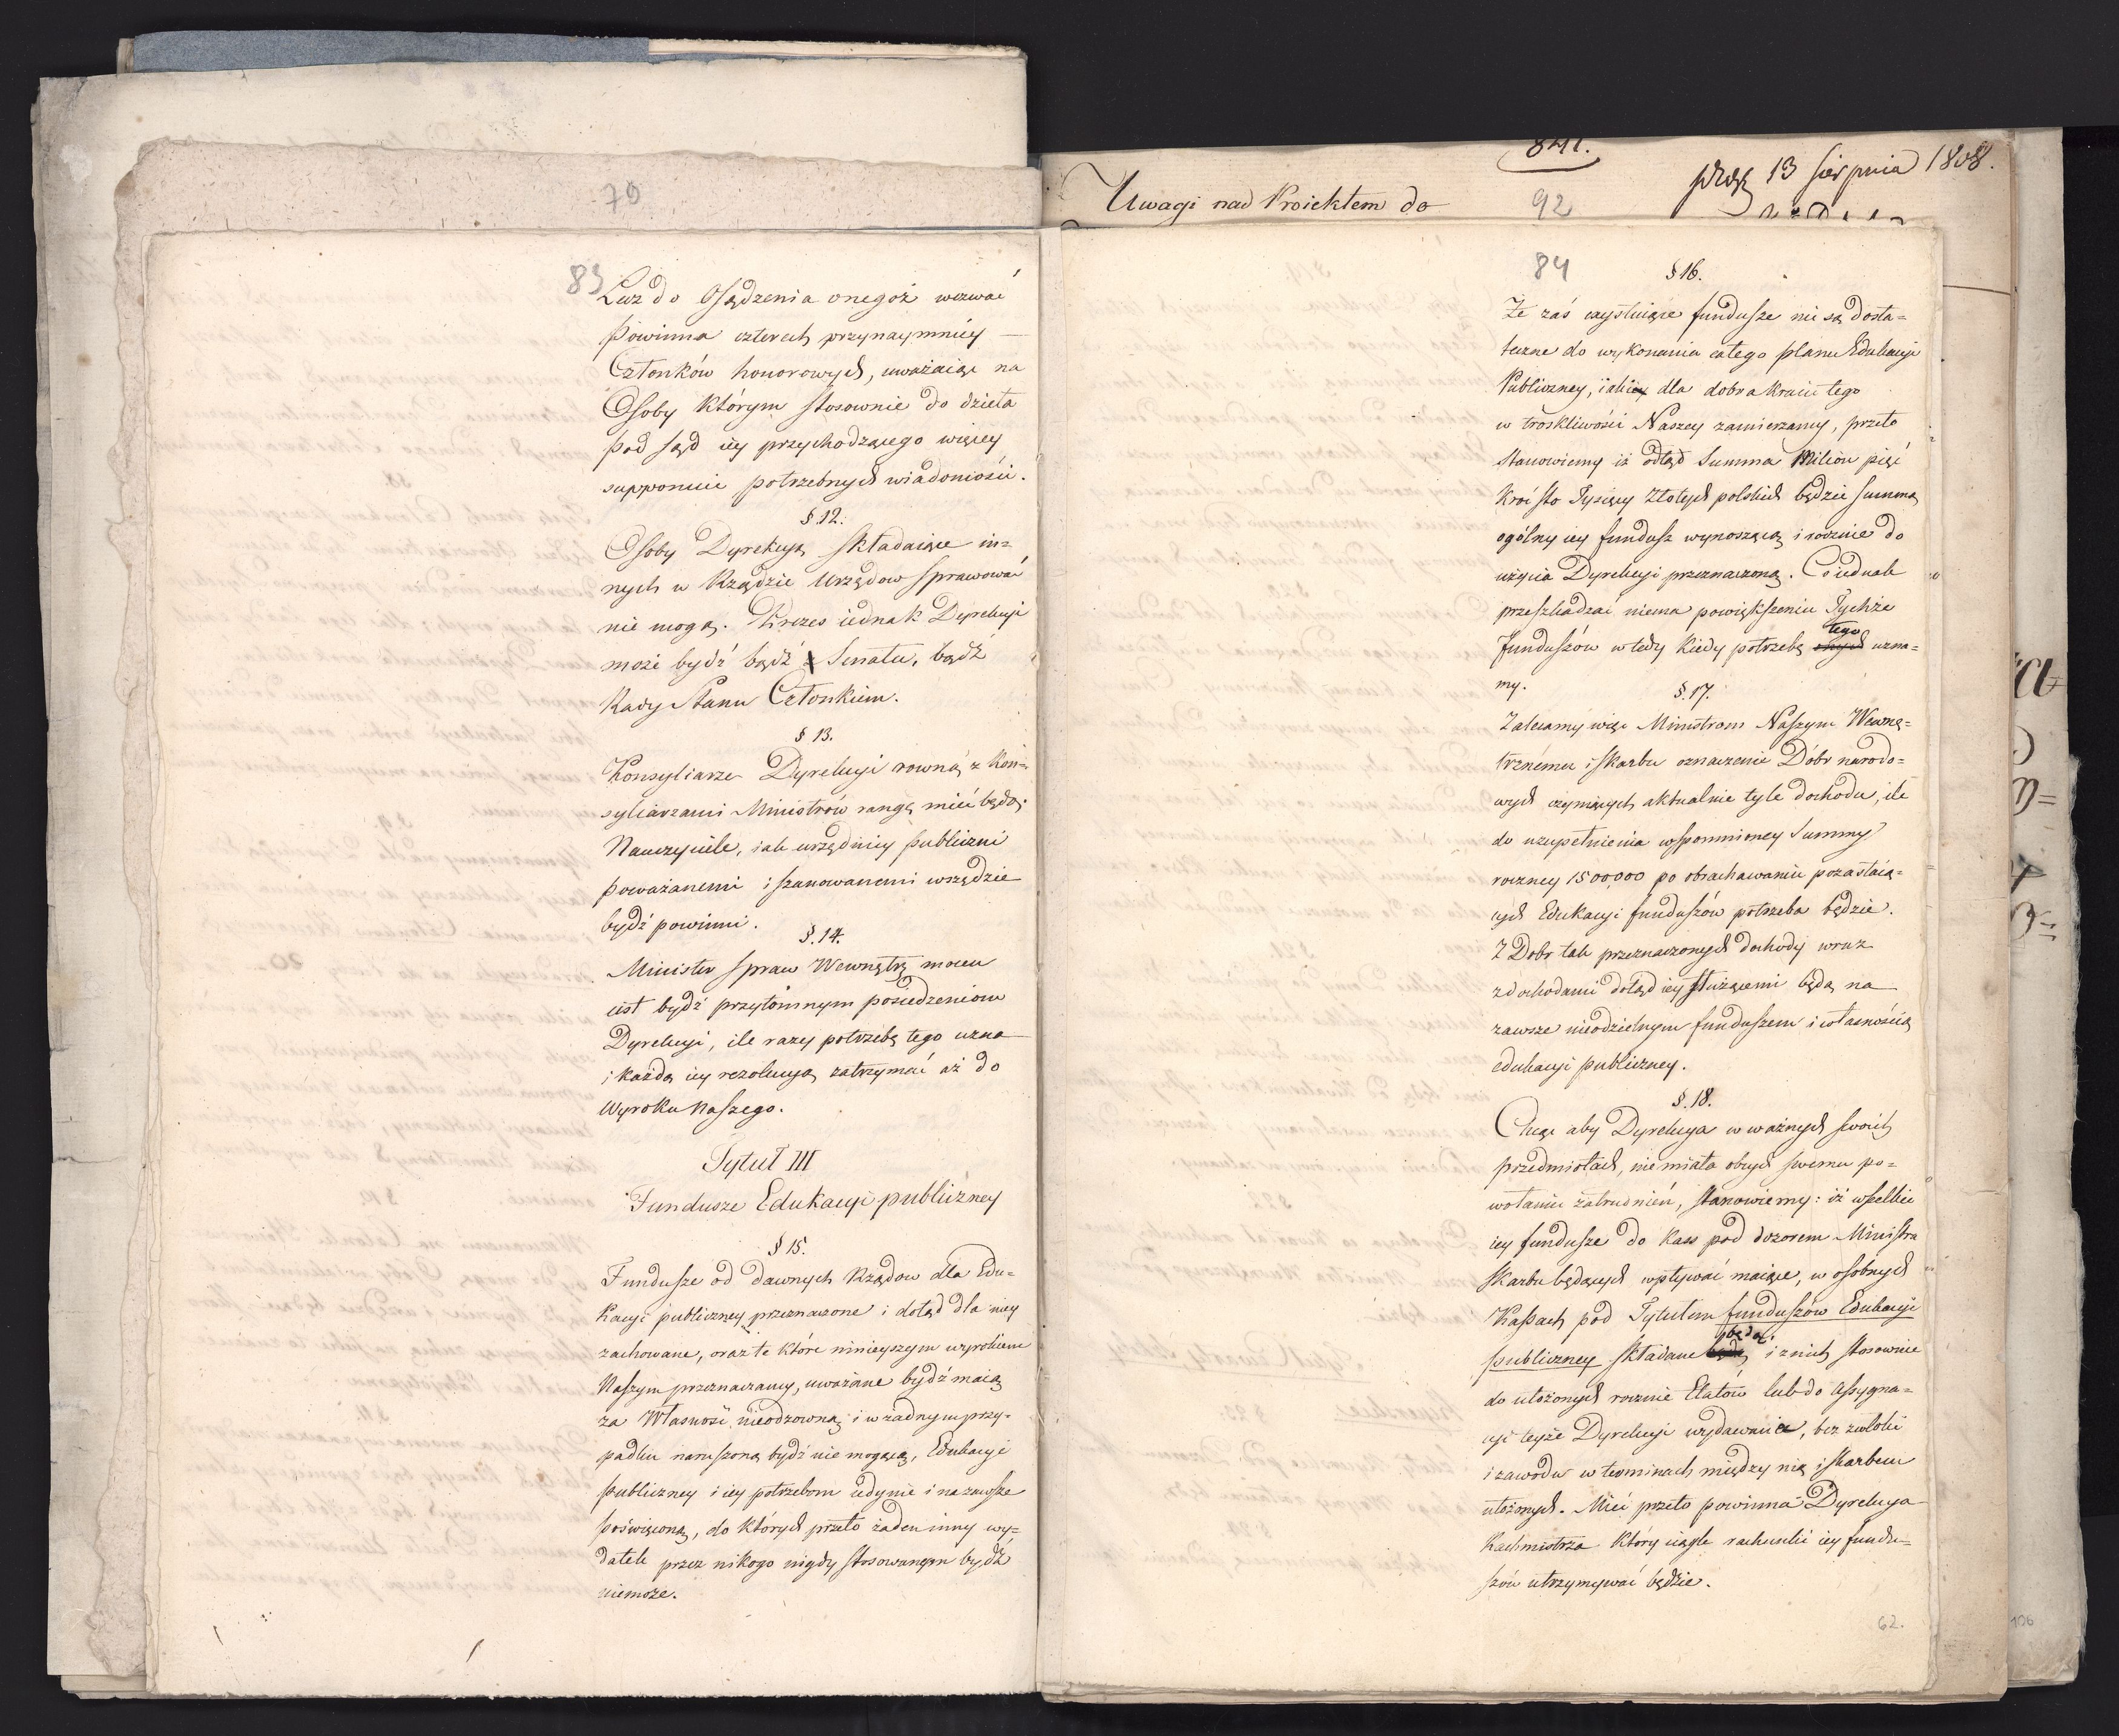 79
83
Lecz do Osądzenia onegoż wezwać
powinna czterech przynaymniéy
Członków honorowych, uważaiąc na
Osoby którym stosownie do dzieła
pod sąd iéy przychodzącego więcey
supponuie potrzebnych wiadomości.
§. 12.
Osoby Dyrekcyą składaiące in=
nych w Rządzie Urzędow sprawować
nie mogą. Prezes iednak Dyrekcyi
może bydź bądź Senatu, bądź
Rady Stanu Członkiem.
§ 13.
Konsyliarze Dyrekcyi rowną z Kon=
syliarzami Ministrów rangę mieć będą.
Nauczyciele, iak urzędnicy publiczni
poważanemi i szanowanemi wszędzie
bydź powinni.
§. 14.
Minister spraw Wewnętrz mocen
iest bydź przytomnym posiedzeniom
Dyrekcyi, ile razy potrzebę tego uzna
i każdą iey rezolucyą zatrzymać aż do
Wyroku Naszego.
Tytuł III
Fundusze Edukacyi publiczney
§ 15.
Fundusze od dawnych Rządow dla Edu=
kacyi publiczney przeznaczone i dotąd dla niey
zachowane, oraz te które ninieyszym wyrokiem
Naszym przeznaczamy, uważane bydź maią
za Własność nieodzowną i w żadnym przy=
padku naruszoną bydź nie mogącą, Edukacyi
publiczney i iey potrzebom iedynie i na zawsze
poświęconą, do których przeto żaden inny wy=
datek przez nikogo nigdy stosowanym bydź
niemoże.
Uwagi nad Proiektem do
92
13 sierpnia 1808.
84
§ 16.
Że zaś czystniące fundusze nie są dosta=
teczne do wykonania całego planu Edukacyi
Publiczney, iaki dla dobra kraiu tego
w troskliwości Naszey zamierzamy, przeto
stanowiemy iż odtąd Summa Milion pięć
kroć sto Tysięcy Złotych polskich będzie summą
ogólny iey fundusz wynoszącą i rocznie do
użycia Dyrekcyi przeznaczoną. Co iednak
przeszkadzać niema powiększeniu Tychże
Funduszów wtedy kiedy potrzebę tego uzna=
my.
§. 17.
Zalecamy więc Ministrom Naszym Wewnę=
trznému i Skarbu oznaczenie Dóbr narodo=
wych czyniących aktualnie tyle dochodu, ile
do uzupełnienia wspomnioney Summy
roczney 1500,000 po obrachowaniu pozostaią=
cych Edukacyi funduszów potrzeba będzie.
Z Dobr tak przeznaczonych dochody wraz
z dochodami dotąd iey służącemi będą na
zawsze nieodzielnym funduszem i własnością
edukacyi publiczney.
§. 18.
Chcąc aby Dyrekcya w ważnych swoich
przedmiotach, nie miała obcych swemu po=
wołaniu zatrudnień, stanowiemy: iż wszelkie
iey fundusze do Kass pod dozorem Ministra
Skarbu będących wpływać maiące, w osobnych
Kassach pod Tytułem funduszów Edukacyi
publiczney składane będą, i z nich stosownie
do ułożonych rocznie Etatów lub do Assygna=
cyi teyże Dyrekcyi wydawane, bez zwłoki
i zawodu w terminach między nią i Skarbem
ułożonych. Mieć przeto powinna Dyrekcya
Rachmistrza który ciągle rachunki iey fundu=
szów utrzymywać będzie.
62.
106